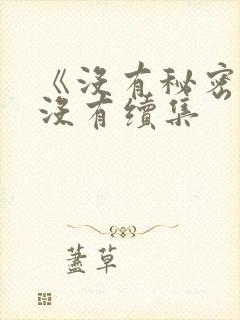 《没有秘密
没有續集
蓋草